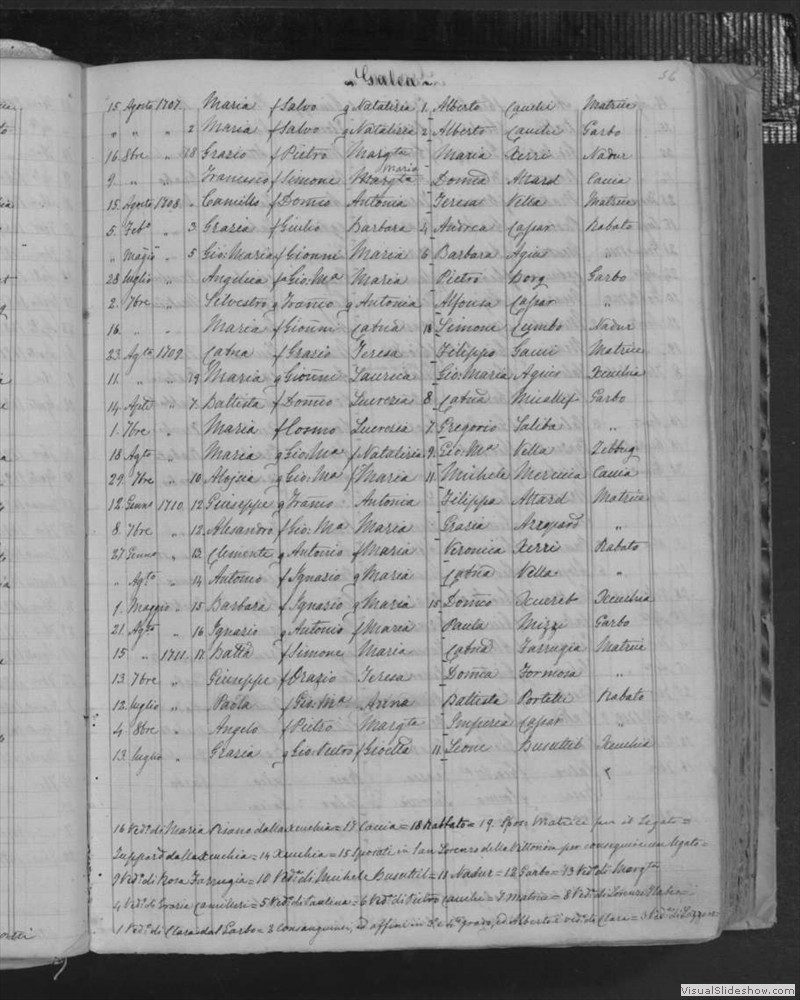 Galea
56
15 Agosto 1707 Maria f Salvo q Natalizia 1 Alberto Cauchi Matrice
" " " 2 Maria f Salvo q Natalizia 2 Alberto Cauchi Garbo
16 8bre " 28 Grazio f Pietro Margta Maria Xerri Nadur
9 " " Francesco f Simone Maria Margta Domca Attard Caccia
15 Agosto 1708 " Camillo f Domco Antonia Teresa Vella Matrice
5 Febo " 3 Grazia f Giulio Barbara 4 Andrea Capar Rabato
" Maggio " 5 Gio: Maria f Gionni Maria 6 Barbara Agius "
28 luglio " Angelica f Gio: Ma Maria Pietro Borg Garbo
2 7bre " Silvestro q Franco q Antonia Alfonsa Capar "
16 " " Maria f Gionni Catna 18 Simone Cumbo Nadur
23 Agto 1709 Catna f Grazio Teresa Filippo Gauci Matrice
11 " " 19 Maria q Gionni Laurica Gio: Maria Agius Xeuchia
14 Aple " 7 Battista f Domco Lucrezia 8 Catna Muallef Garbo
1 7bre " Maria f Cosmo Lucrezia 7 Gregorio Saliba "
18 Agto " Maria q Gio: Ma f Natalizia 9 Gio: Ma Vella Zebbug
29 7bre " 10 Aloisea q Gio: Ma f Maria 11 Michele Mercieca Caccia
12 Genno 1710 12 Giuseppe q Franco Antonia Filippa Attard Matrice
8 7bre " 12 Alesandro f Gio: Ma Maria Grazia "
27 Genno " 13 Clemente q Antonio f Maria Veronica Xerri Rabato
" Agto " 14 Antonio f Ignazio q Maria Catna Vella "
1 Maggio " 15 Barbara f Ignazio q Maria 15 Domco Xuereb Xeuchia
21 Agto " 16 Ignazio q Antonio f Maria Paula Mizzi Garbo
15 " 1711 17 Batta f Simone Maria Catna Farrugia Matrice
13 7bre " Giuseppe f Orazio Teresa Domca Formosa "
12 luglio " Paola f Gio: Ma Anna Battista Portelli Rabato
4 8bre " Angelo f Pietro Margta Imperia Capar "
13 luglio " Grazia q Gio: Pietro f Gioella 11 Leone Busuttil Xeuchia
16 Veda di Maria Pisano dalla Xeuchia = 17 Caccia = 18 Rabbato = 19 Sposi Matrice per il Legato =
dalla Xeuchia = 14 Xeuchia = 15 Sposati in San Lorenzo della Vittoriosa per conseguire un legato =
9 Vedo di Rosa Farrugia = 10 Veda di Michele Busuttil = 11 Nadur = 12 Garbo = 13 Vedo di Margta
4 Vedo di Grazia Camilleri = 5 Vedo di Paolina = 6 Veda di Pietro Cauchi = 7 Matrice = 8 Veda di
1 Vedo di Clara dal Garbo = 2 Consanguinei, ed affini in 3o e 4o grado, ed Alberto è vedo di Clara = 3 Veda di
VisualSlideshow.com